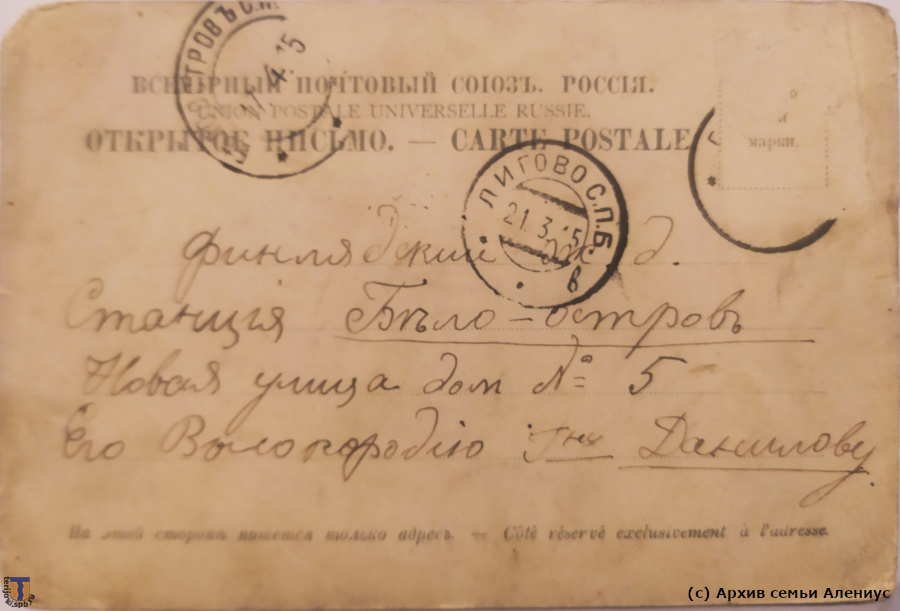 ВСЕМІРНЫЙ ПОЧТОВЫЙ СОЮЗЪ. РОССІЯ.
UNION POSTALE UNIVERSELLE RUSSIE.
ОТКРЫТОЕ ПИСЬМО. — CARTE POSTALE
марки.
ЛИГОВО С.П.Б.
21.3.15
в
Финлядский ж. д.
Станція Бѣло-островъ
Новая улица дом № 5
Его Высокородію Гну Данилову
На этой сторонѣ пишется только адресъ. — Côté réservé exclusivement à l'adresse.
terijoki.spb.ru
(c) Архив семьи Алениус